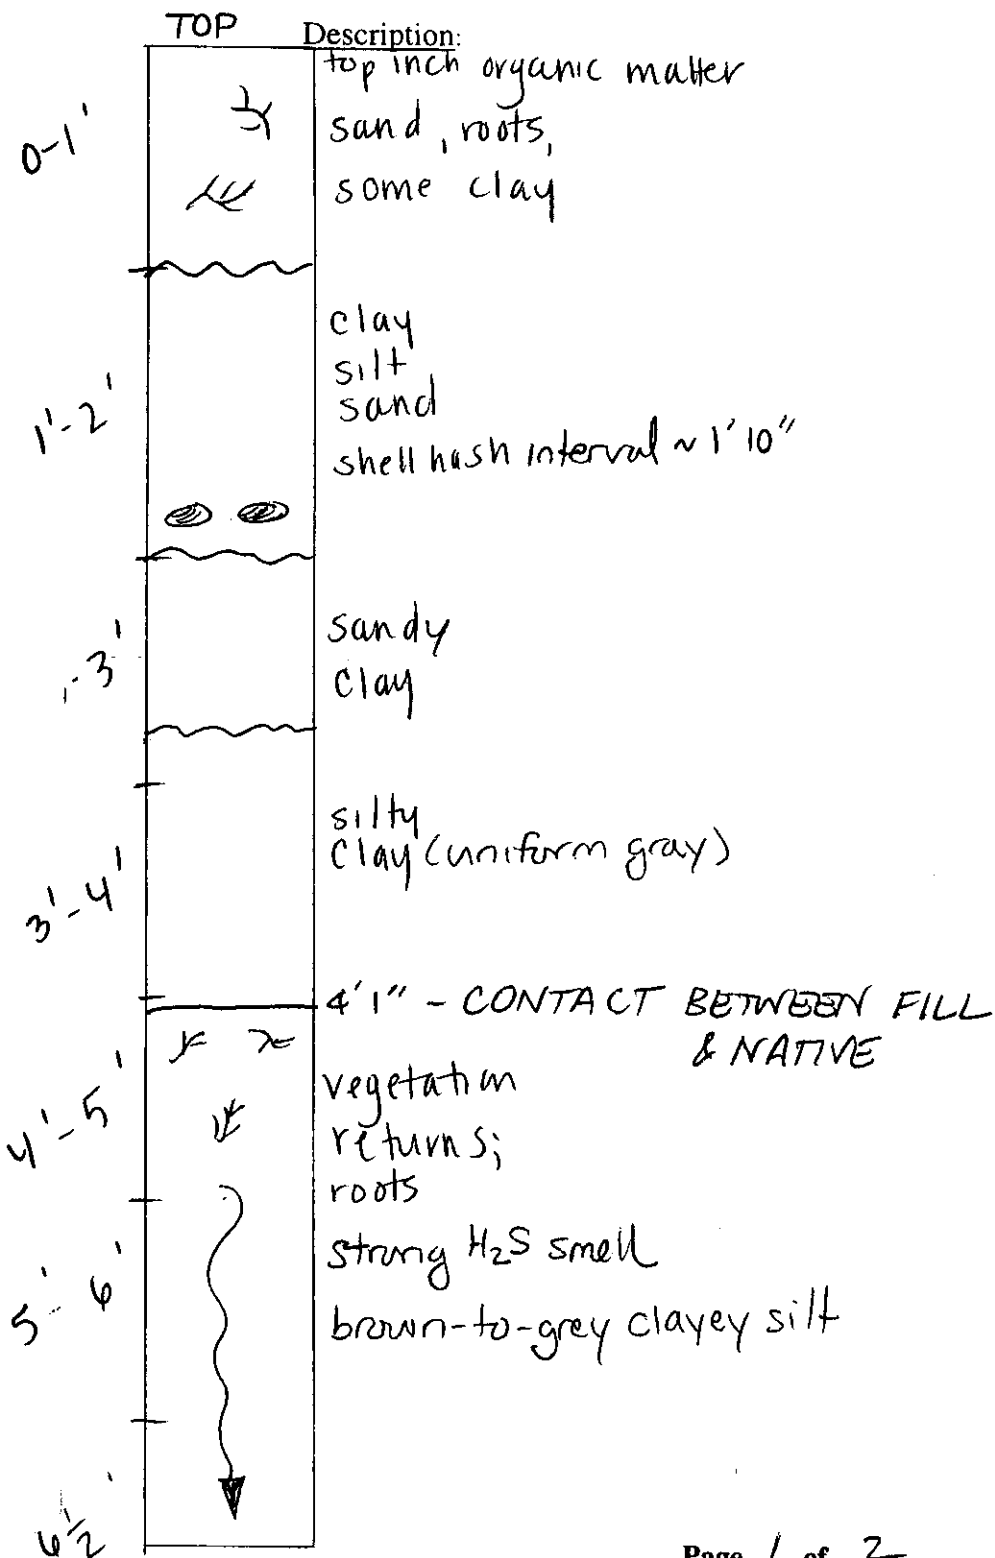 TOP
Description:
top inch organic matter
0-1'
sand, roots,
some clay
clay
silt
1'-2'
sand
shell hash interval ~ 1'10"
sandy
-3'
clay
silty
clay (uniform gray)
3'-4'
4'1" - CONTACT BETWEEN FILL
& NATIVE
vegetation
4'-5'
returns;
roots
strong H₂S smell
5'-6'
brown-to-grey clayey silt
6½'
Page 1 of 2